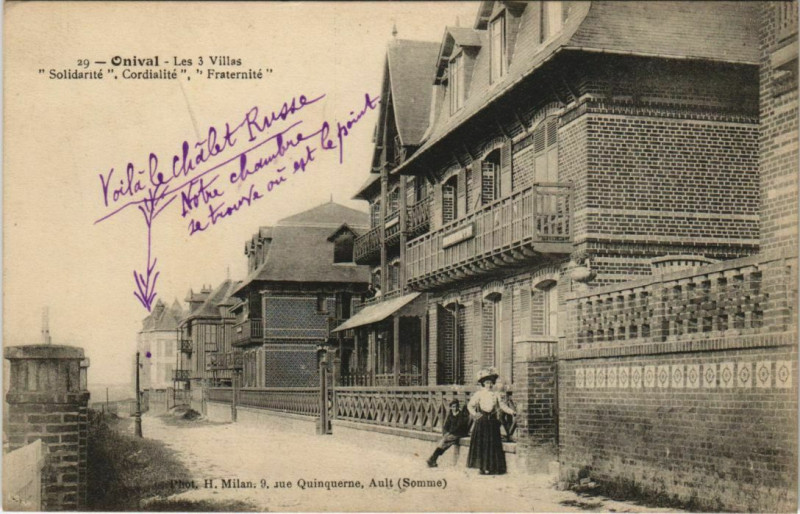 29 — Onival - Les 3 Villas
" Solidarité ", Cordialité ", " Fraternité "
Voilà le châlet Russe
Notre chambre
se trouve où est le point
Phot. H. Milan, 9, rue Quinquerne, Ault (Somme)